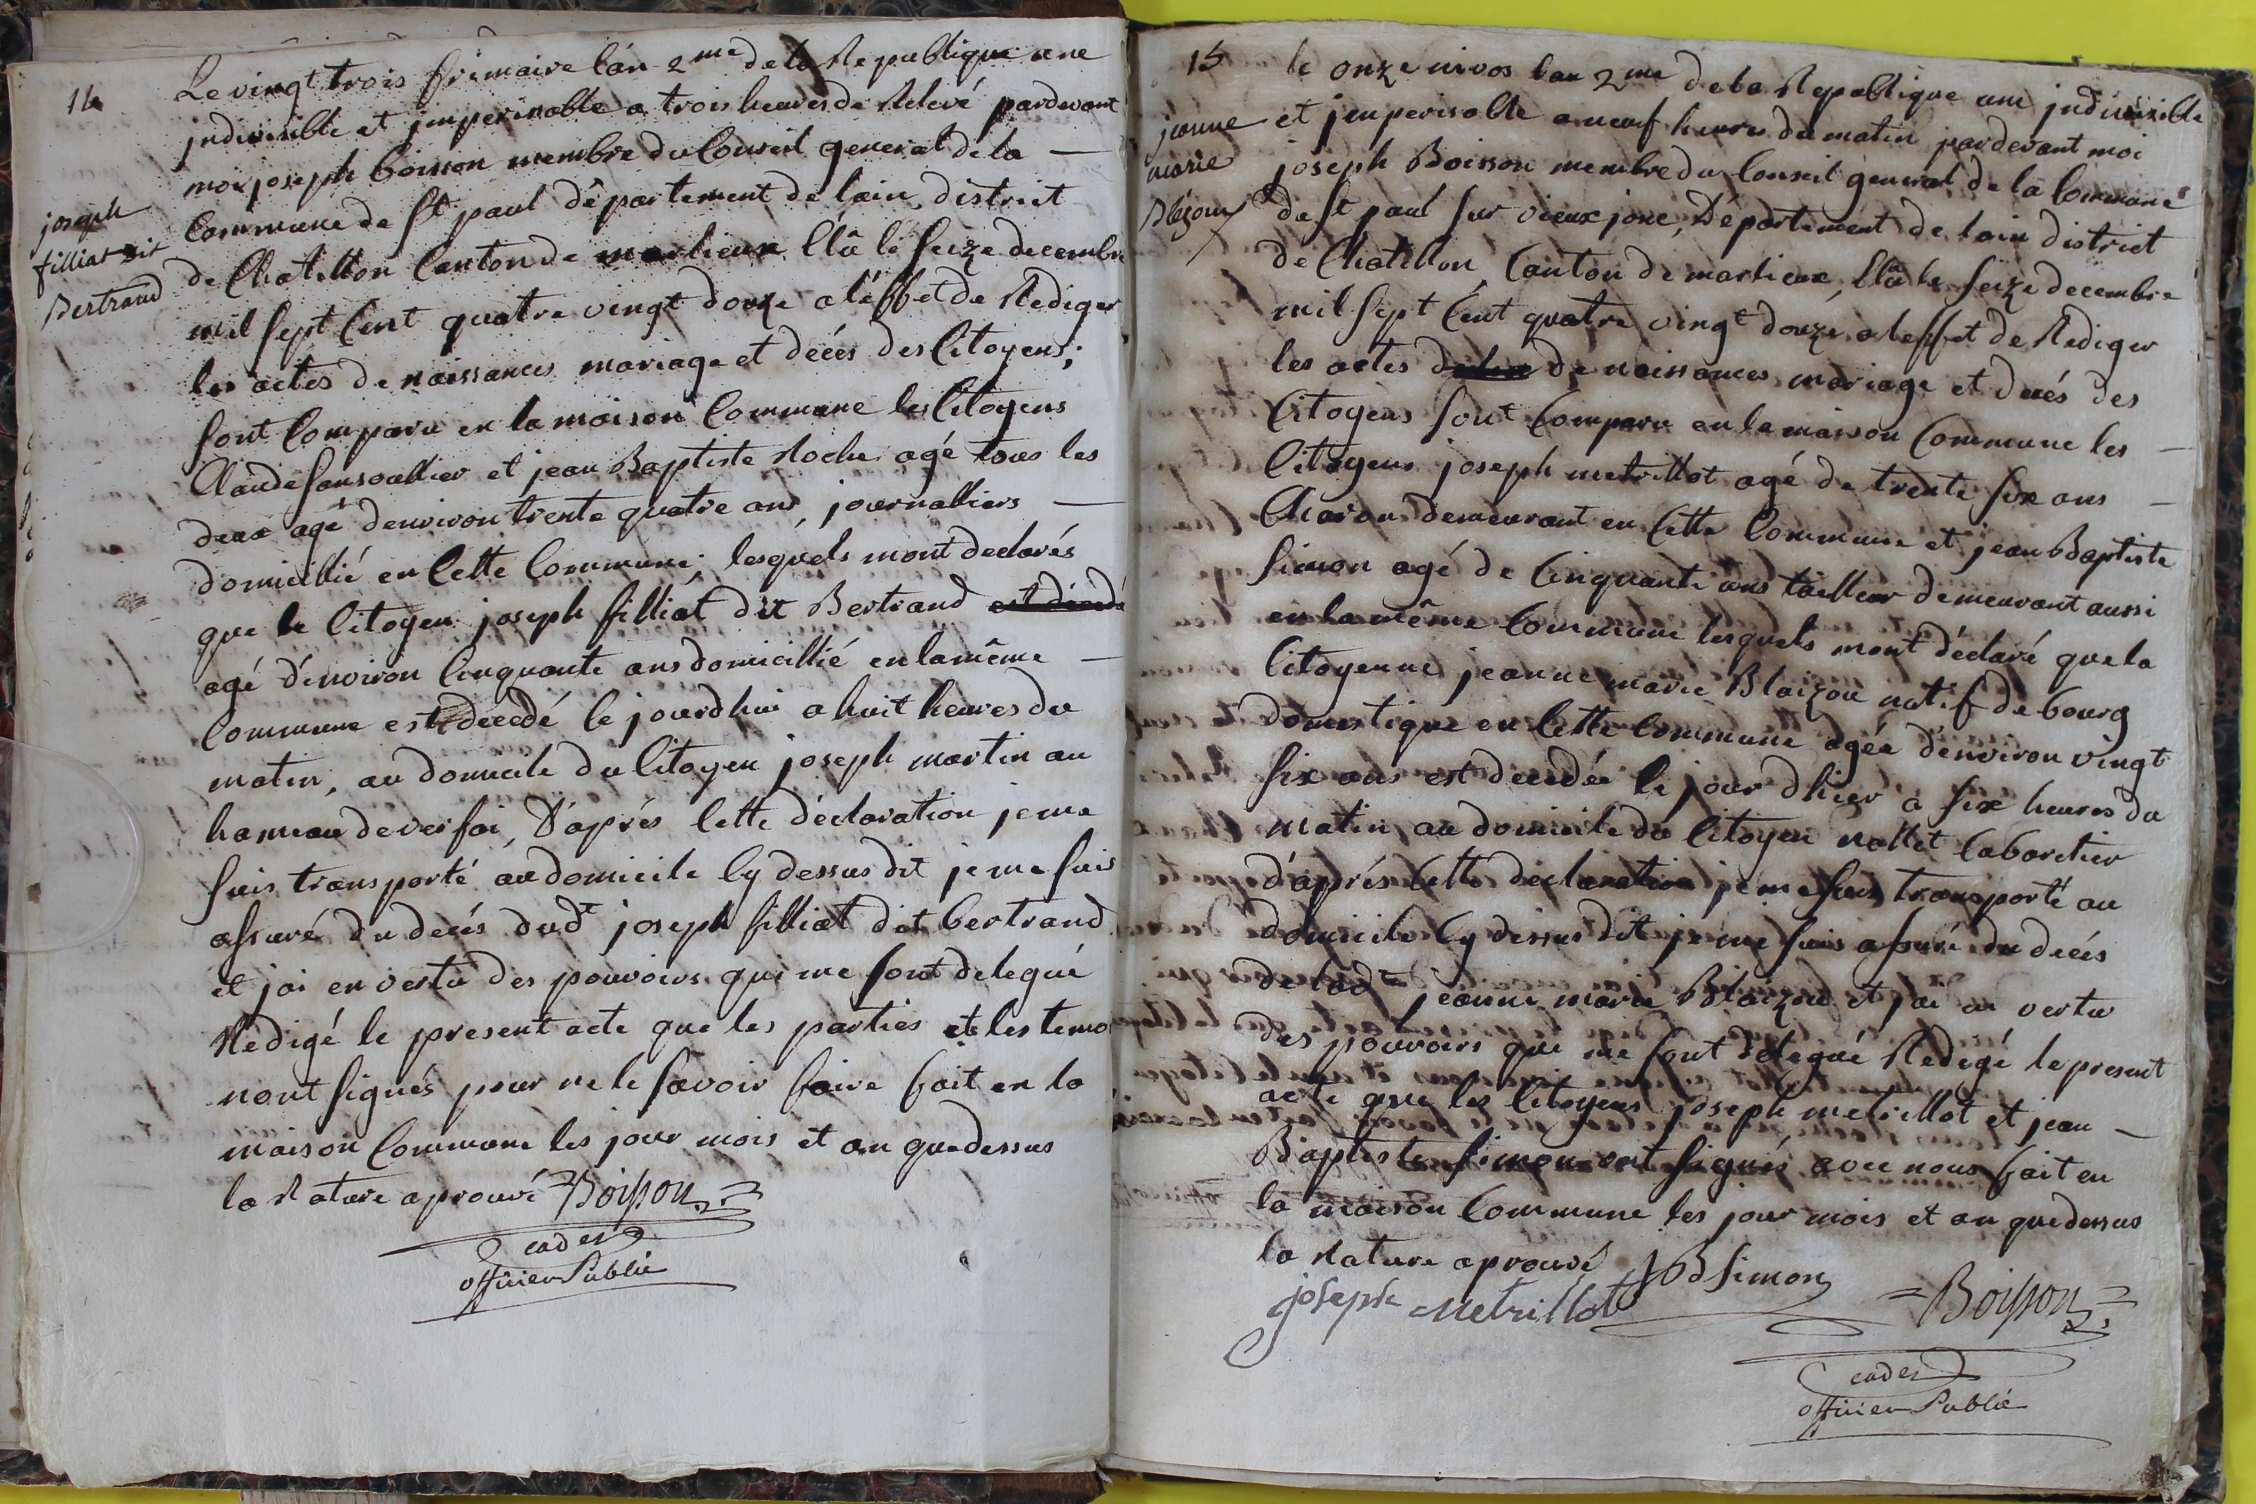 14
Le vingt trois frimaire l'an 2me de la Republique une
jndivisible et jmperisoble a trois heures de Relevé pardevant
moi joseph boisson membre du Conseil general de la
Commune de St paul département de lain, district
joseph
filliat dit
Bertrand
de Chatillon Canton de marlieux Elû le seize decembre
mil sept Cent quatre vingt douze a léffet de Rediger
les actes de naissances mariage et décés des Citoyens;
sont Comparu en la maison Commune les Citoyens
Claude et jean Baptiste Roche agé tous les
deux agés denviron trente quatre ans, journalliers
domicillié en Cette Commune; lesquels mont declarés
que le Citoyen joseph filliat dit Bertrand est décedé
agé d'environ Cinquante ans domicillié en la même
Commune est decedé le jourdhui a huit heures du
matin, au domicile du Citoyen joseph martin au
hameau de versai, d'après Cette déclaration je me
suis transporté au domicile Cy dessus dit je me suis
assuré du decés dudt joseph filliat dit bertrand
et jai en vertu des pouvoirs qui me sont delegué
Redigé le present acte que les parties et les temo
nont signés pour ne le savoir faire fait en la
maison Commune les jour mois et an que dessus
la Rature aprouvé Boisson
officier Public
15
le onze nivos l'an 2me de la Republique une jndivisible
et jmperisolble a neuf heures du matin pardevant moi
jeanne
marie
Blézoux
joseph Boisson membre du Conseil général de la Commune
de St paul sur vieux jonc, Département de lain district
de Chatillon, Canton de marlieux, Elû le seize decembre
mil sept Cent quatre vingt douze, a leffet de Rediger
les actes de naissances mariage et decés des
Citoyens sont Comparu en la maison Commune les
Citoyens joseph metrillot agé de trente six ans
Charon demeurant en Cette Commune et jean Baptiste
simon agé de Cinquante ans tailleur demeurant aussi
en la même Commune lesquels mont déclaré que la
Citoyenne jeanne marie Blaizou natif de bourg
domestique en Cette Commune agée d'environ vingt
six ans est decedée le jour dhier a six heures du
matin, au domicile du Citoyen nallet Cabaretier
d'après Cette déclaration je me suis transporté au
domicile Cy dessus dit je me suis assuré du décés
de ladt jeanne marie Blaizou et jai en vertu
des pouvoirs qui me sont délegué Redigé le present
acte que les Citoyens joseph metrillot et jean
Baptiste simon ont signés avec nous fait en
la maison Commune les jour mois et an que dessus
la Rature aprouvé JB Simon
joseph Metrillot Boisson
officier Public